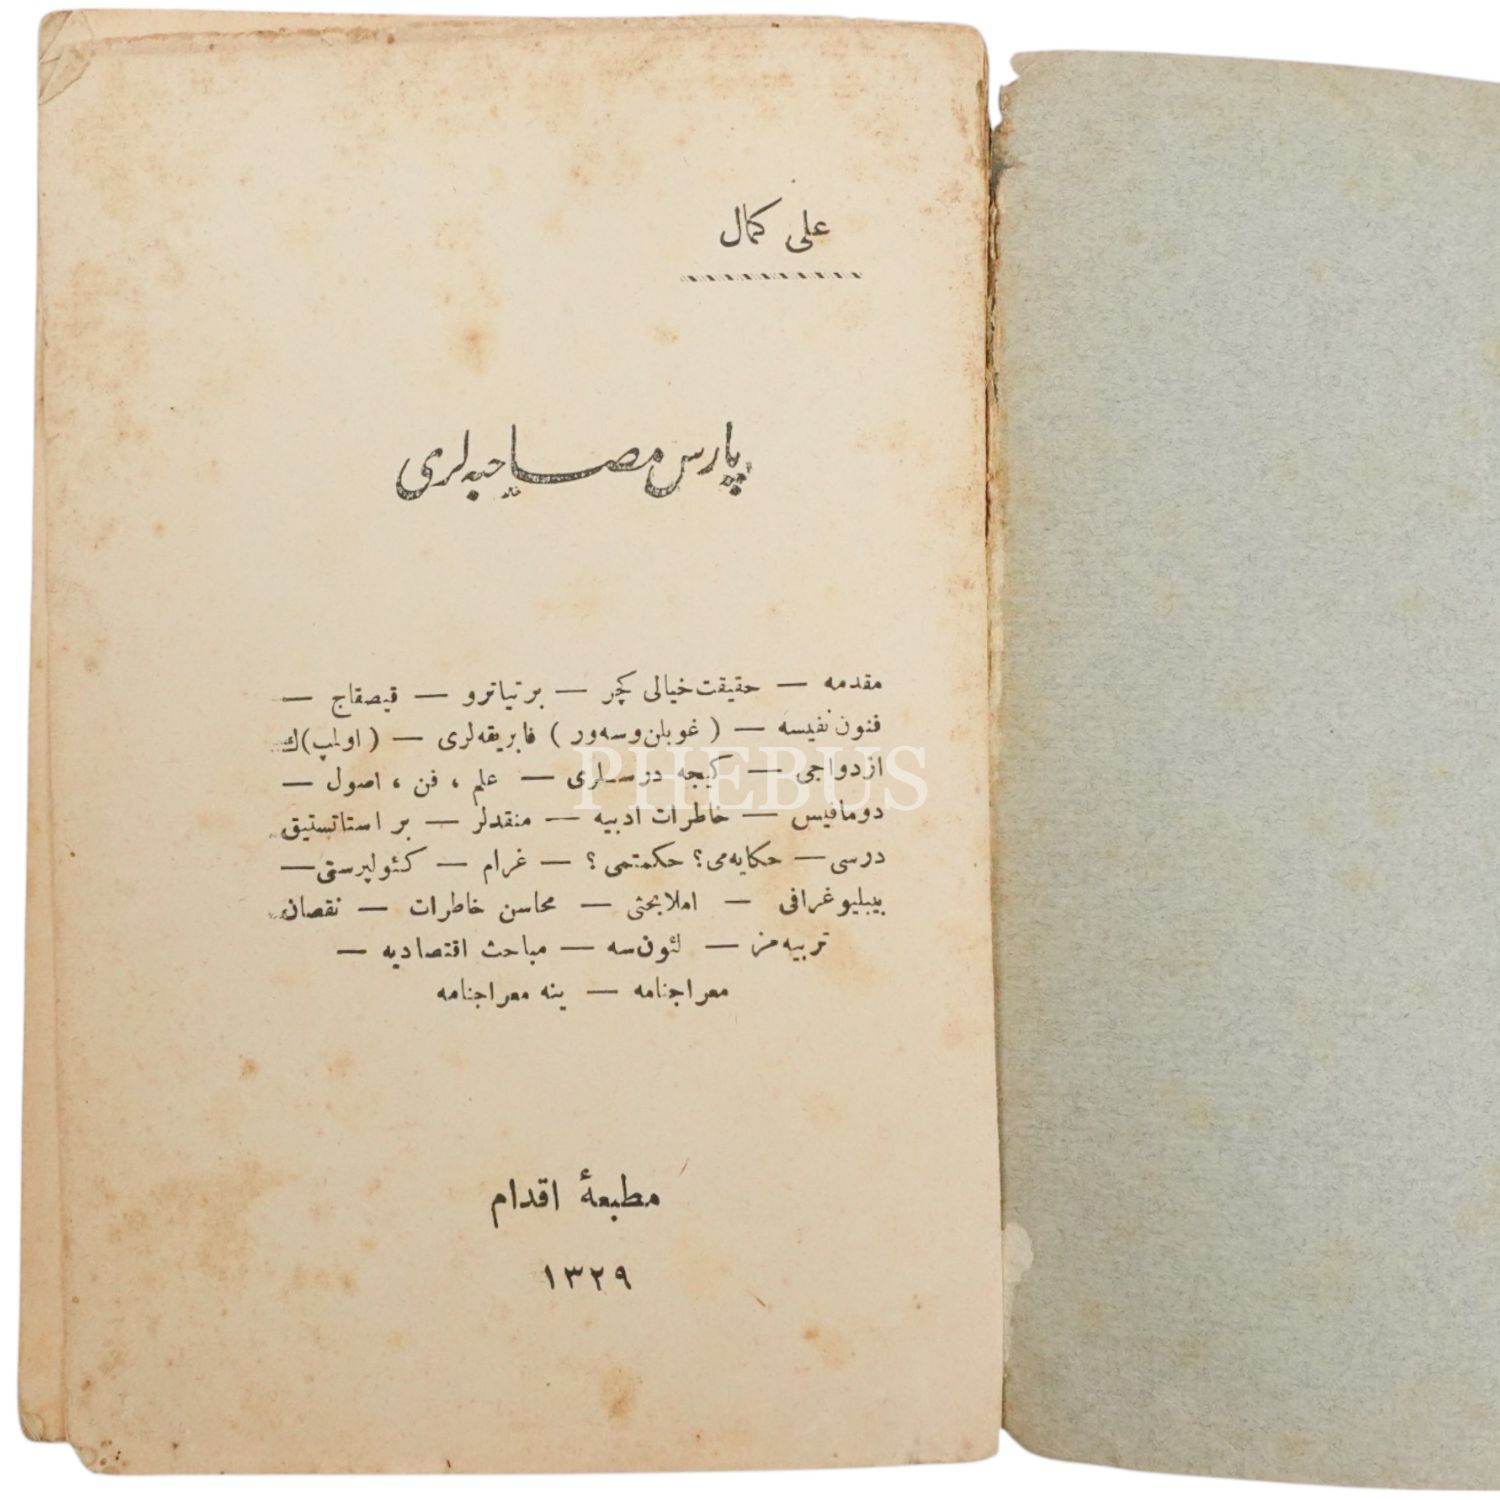 علی کمال
پارس مصاحبه‌لری
مقدمه — حقیقت خیالی کچر — بر تیاترو — قیصقاج —
فنون نفیسه — ( غوبلن وسه‌ور ) فابریقه‌لری — ( اولمپ)ك
ازدواجی — کیجه درسلری — علم ، فن ، اصول —
دومافیس — خاطرات ادبیه — منقدلر — بر استاتستیق
درسی — حکایه‌می؟ حکمتمی؟ — غرام — کئولپرستی —
بیبلیوغرافی — املا بحثی — محاسن خاطرات — نقصان
تربیه‌مز — لئون‌سه — مباحث اقتصادیه —
معراجنامه — ینه معراجنامه
PHEBUS
مطبعهٔ اقدام
١٣٢٩